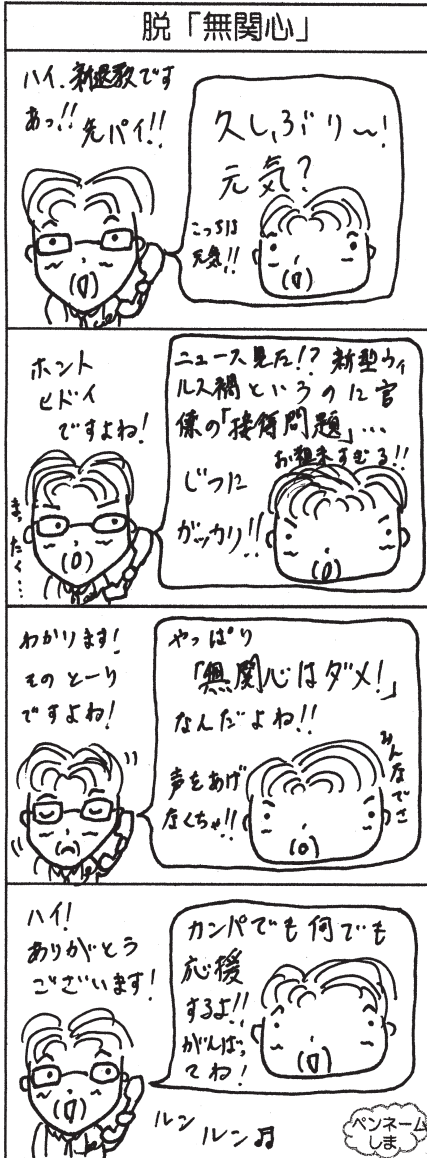 脱「無関心」
ハイ、新退教です
あっ!!先パイ!!
久しぶり〜!
元気?
こっちは
元気!!
ホント
ヒドイ
ですよね!
まったく…
ニュース見た!?新型ウィ
ルス禍というのに官
僚の「接待問題」…
お粗末すぎる!!
じつに
ガッカリ!!
わかります!
そのとーり
ですよね!
やっぱり
「無関心はダメ!」
なんだよね!!
みんなでさ
声をあげ
なくちゃ!!
ハイ!
ありがとう
ございます!
カンパでも何でも
応援
するよ!!
がんばっ
てね!
ルン
ルン♬
ペンネーム
しま